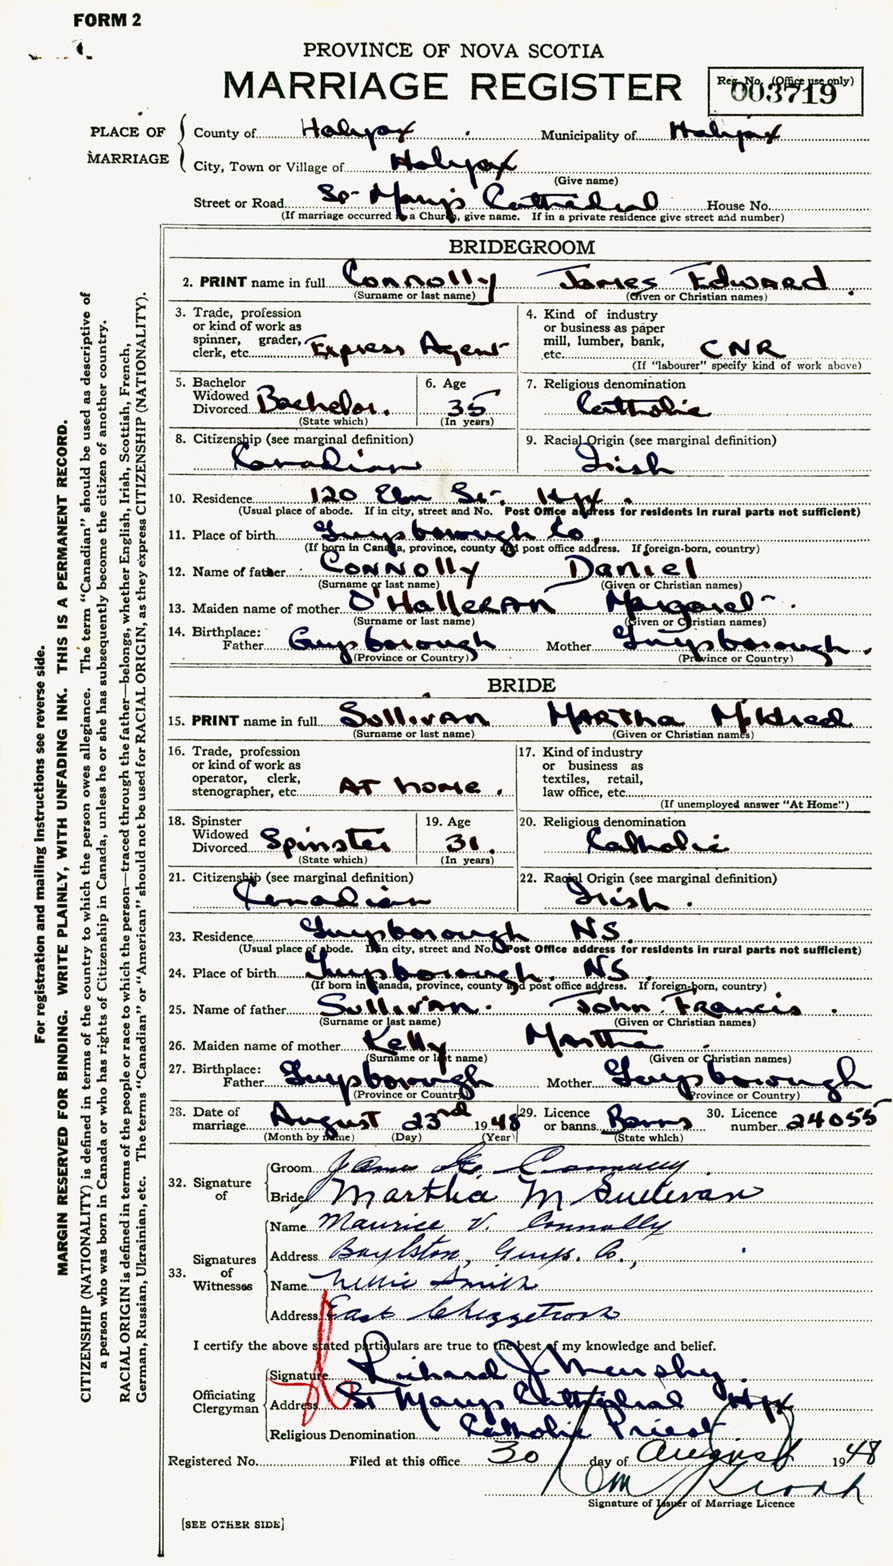 FORM 2
PROVINCE OF NOVA SCOTIA
MARRIAGE REGISTER
Reg. No. (Office use only)
003719
PLACE OF MARRIAGE
County of Halifax Municipality of Halifax
City, Town or Village of Halifax
(Give name)
Street or Road St. Mary's Cathedral House No.
(If marriage occurred in a Church, give name. If in a private residence give street and number)
BRIDEGROOM
2. PRINT name in full Connolly James Edward
(Surname or last name) (Given or Christian names)
3. Trade, profession
or kind of work as
spinner, grader,
clerk, etc. Express Agent
4. Kind of industry
or business as paper
mill, lumber, bank,
etc. CNR
(If "labourer" specify kind of work above)
5. Bachelor
Widowed
Divorced Bachelor.
(State which)
6. Age
35
(In years)
7. Religious denomination
Catholic
8. Citizenship (see marginal definition)
Canadian
9. Racial Origin (see marginal definition)
Irish
10. Residence 120 Elm St. Hfx.
(Usual place of abode. If in city, street and No. Post Office address for residents in rural parts not sufficient)
11. Place of birth Guysborough Co.
(If born in Canada, province, county and post office address. If foreign-born, country)
12. Name of father Connolly Daniel
(Surname or last name) (Given or Christian names)
13. Maiden name of mother O'Halleran Margaret
(Surname or last name) (Given or Christian names)
14. Birthplace:
Father Guysborough Mother Guysborough.
(Province or Country) (Province or Country)
BRIDE
15. PRINT name in full Sullivan Martha
(Surname or last name) (Given or Christian names)
16. Trade, profession
or kind of work as
operator, clerk,
stenographer, etc. At home.
17. Kind of industry
or business as
textiles, retail,
law office, etc.
(If unemployed answer "At Home")
18. Spinster
Widowed
Divorced Spinster
(State which)
19. Age
31.
(In years)
20. Religious denomination
Catholic
21. Citizenship (see marginal definition)
Canadian
22. Racial Origin (see marginal definition)
Irish.
23. Residence Guysborough NS.
(Usual place of abode. If in city, street and No. Post Office address for residents in rural parts not sufficient)
24. Place of birth Guysborough. NS.
(If born in Canada, province, county and post office address. If foreign-born, country)
25. Name of father Sullivan. John Francis.
(Surname or last name) (Given or Christian names)
26. Maiden name of mother Kelly Martha.
(Surname or last name) (Given or Christian names)
27. Birthplace:
Father Guysborough Mother Guysborough
(Province or Country) (Province or Country)
28. Date of
marriage August 23rd 1948
(Month by name) (Day) (Year)
29. Licence
or banns Banns
(State which)
30. Licence
number 24055
32. Signature of
Groom James E. Connolly
Bride Martha M Sullivan
33. Signatures of Witnesses
Name Maurice V. Connolly
Address Boylston, Guys. Co.,
Name Nellie Smith
Address East Chezzetcook
I certify the above stated particulars are true to the best of my knowledge and belief.
Officiating Clergyman
Signature Richard J Murphy.
Address St Marys Cathedral Hfx
Religious Denomination Catholic Priest
Registered No. Filed at this office 30 day of August 1948
Signature of Issuer of Marriage Licence
[SEE OTHER SIDE]
For registration and mailing instructions see reverse side.
MARGIN RESERVED FOR BINDING. WRITE PLAINLY, WITH UNFADING INK. THIS IS A PERMANENT RECORD.
CITIZENSHIP (NATIONALITY) is defined in terms of the country to which the person owes allegiance. The term "Canadian" should be used as descriptive of
a person who was born in Canada or who has rights of Citizenship in Canada, unless he or she has subsequently become the citizen of another country.
RACIAL ORIGIN is defined in terms of the people or race to which the person—traced through the father—belongs, whether English, Irish, Scottish, French,
German, Russian, Ukrainian, etc. The terms "Canadian" or "American" should not be used for RACIAL ORIGIN, as they express CITIZENSHIP (NATIONALITY).